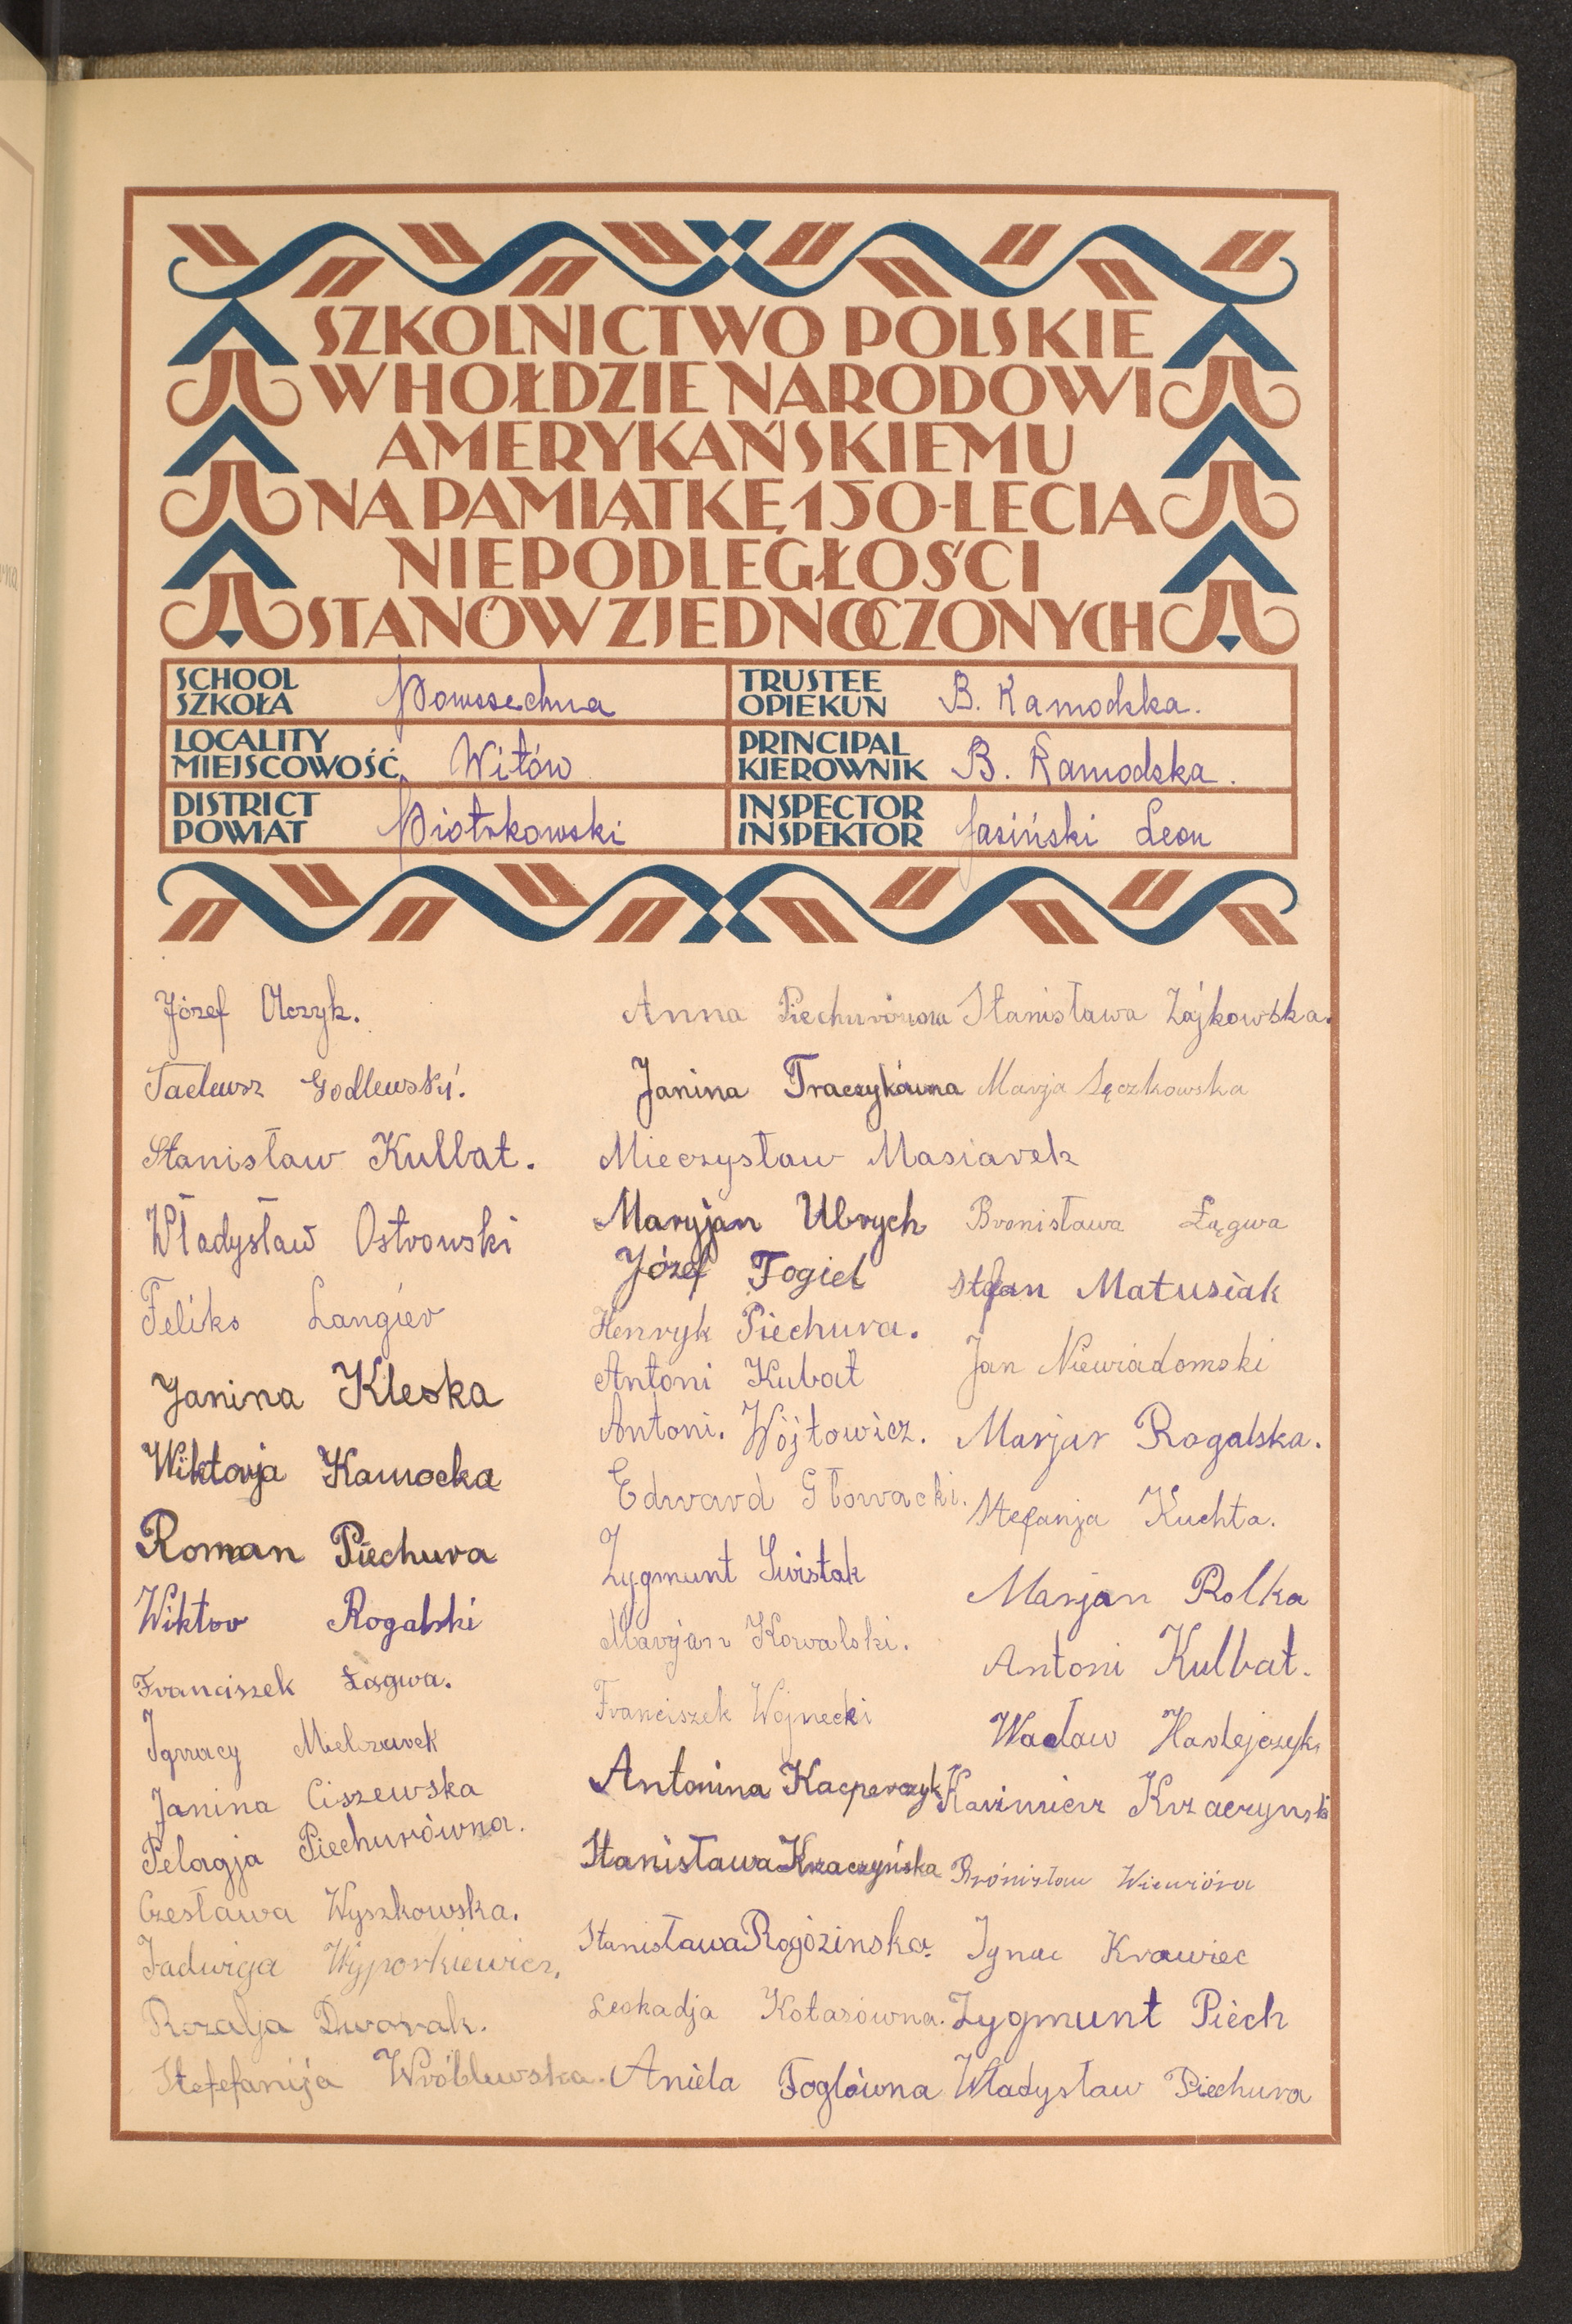 SZKOLNICTWO POLSKIE
W HOŁDZIE NARODOWI
AMERYKAŃSKIEMU
NA PAMIĄTKĘ 150-LECIA
NIEPODLEGŁOŚCI
STANÓW ZJEDNOCZONYCH
SCHOOL
SZKOŁA Powszechna
TRUSTEE
OPIEKUN B. Kamodzka.
LOCALITY
MIEJSCOWOŚĆ Witów
PRINCIPAL
KIEROWNIK B. Kamodzka.
DISTRICT
POWIAT Piotrkowski
INSPECTOR
INSPEKTOR Jasiński Leon
Józef Olczyk.
Tadeusz Godlewski.
Stanisław Kulbat.
Władysław Ostrowski
Feliks Langier
Janina Kleska
Wiktorja Kamocka
Roman Piechura
Wiktor Rogalski
Franciszek Łągwa.
Ignacy Mielczarek
Janina Ciszewska
Pelagja Piechurówna.
Czesława Wyszkowska.
Jadwiga Wyporkiewicz,
Rozalja Dworak.
Stefefanija Wróblewska.
Anna Piechurówna
Janina Traczykówna
Mieczysław Masiarek
Maryjan Ubrych
Józef Fogiel
Henryk Piechura.
Antoni Kubat
Antoni. Wójtowicz.
Edward Głowacki.
Zygmunt Swistak
Marjan Kowalski.
Franciszek Wojnecki
Antonina Kacperczyk
Stanisława Krzaczyńska
Stanisława Rogózinska.
Leokadja Kotasówna.
Aniela Foglówna
Stanisława Zájkowska.
Marja Łęczkowska
Bronisława Łągwa
Stefan Matusiak
Jan Niewiadomski
Marjar Rogalska.
Stefanja Kuchta.
Marjan Rolka
Antoni Kulbat.
Wacław Hartejczyk
Kazimierz Krzaczynski
Brónisław Wiewióra
Ignac Krawiec
Zygmunt Piech
Władysław Piechura